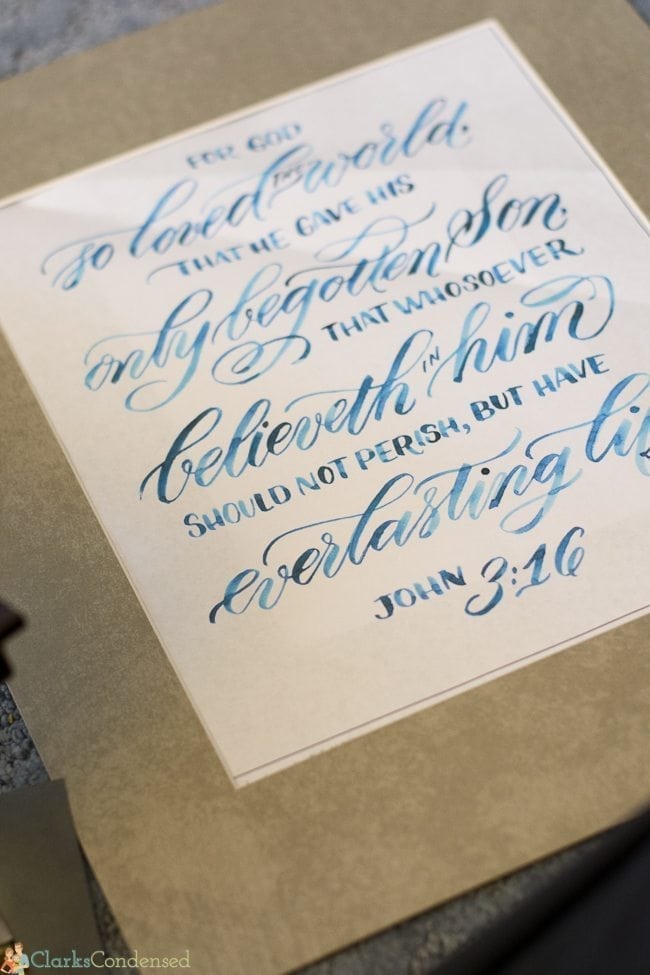 FOR GOD
so loved THE world
THAT HE GAVE HIS
only begotten Son
THAT WHOSOEVER
believeth IN him
SHOULD NOT PERISH, BUT HAVE
everlasting lif
JOHN 3:16
ClarksCondensed